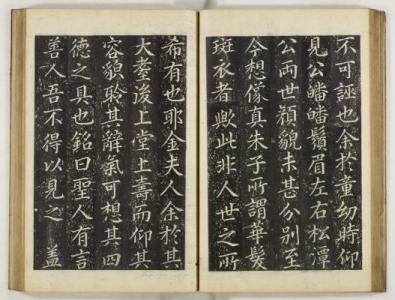 不可誣也余於童幼時仰
見公皤皤鬚眉左右松潭
公兩世顏貌未甚分別至
今想像真朱子所謂華髮
斑衣者歟此非人世之所
希有也耶金夫人余於其
大耋後上堂上壽而仰其
容貌聆其辭氣可想其四
德之具也銘曰聖人有言
善人吾不得以見之 蓋